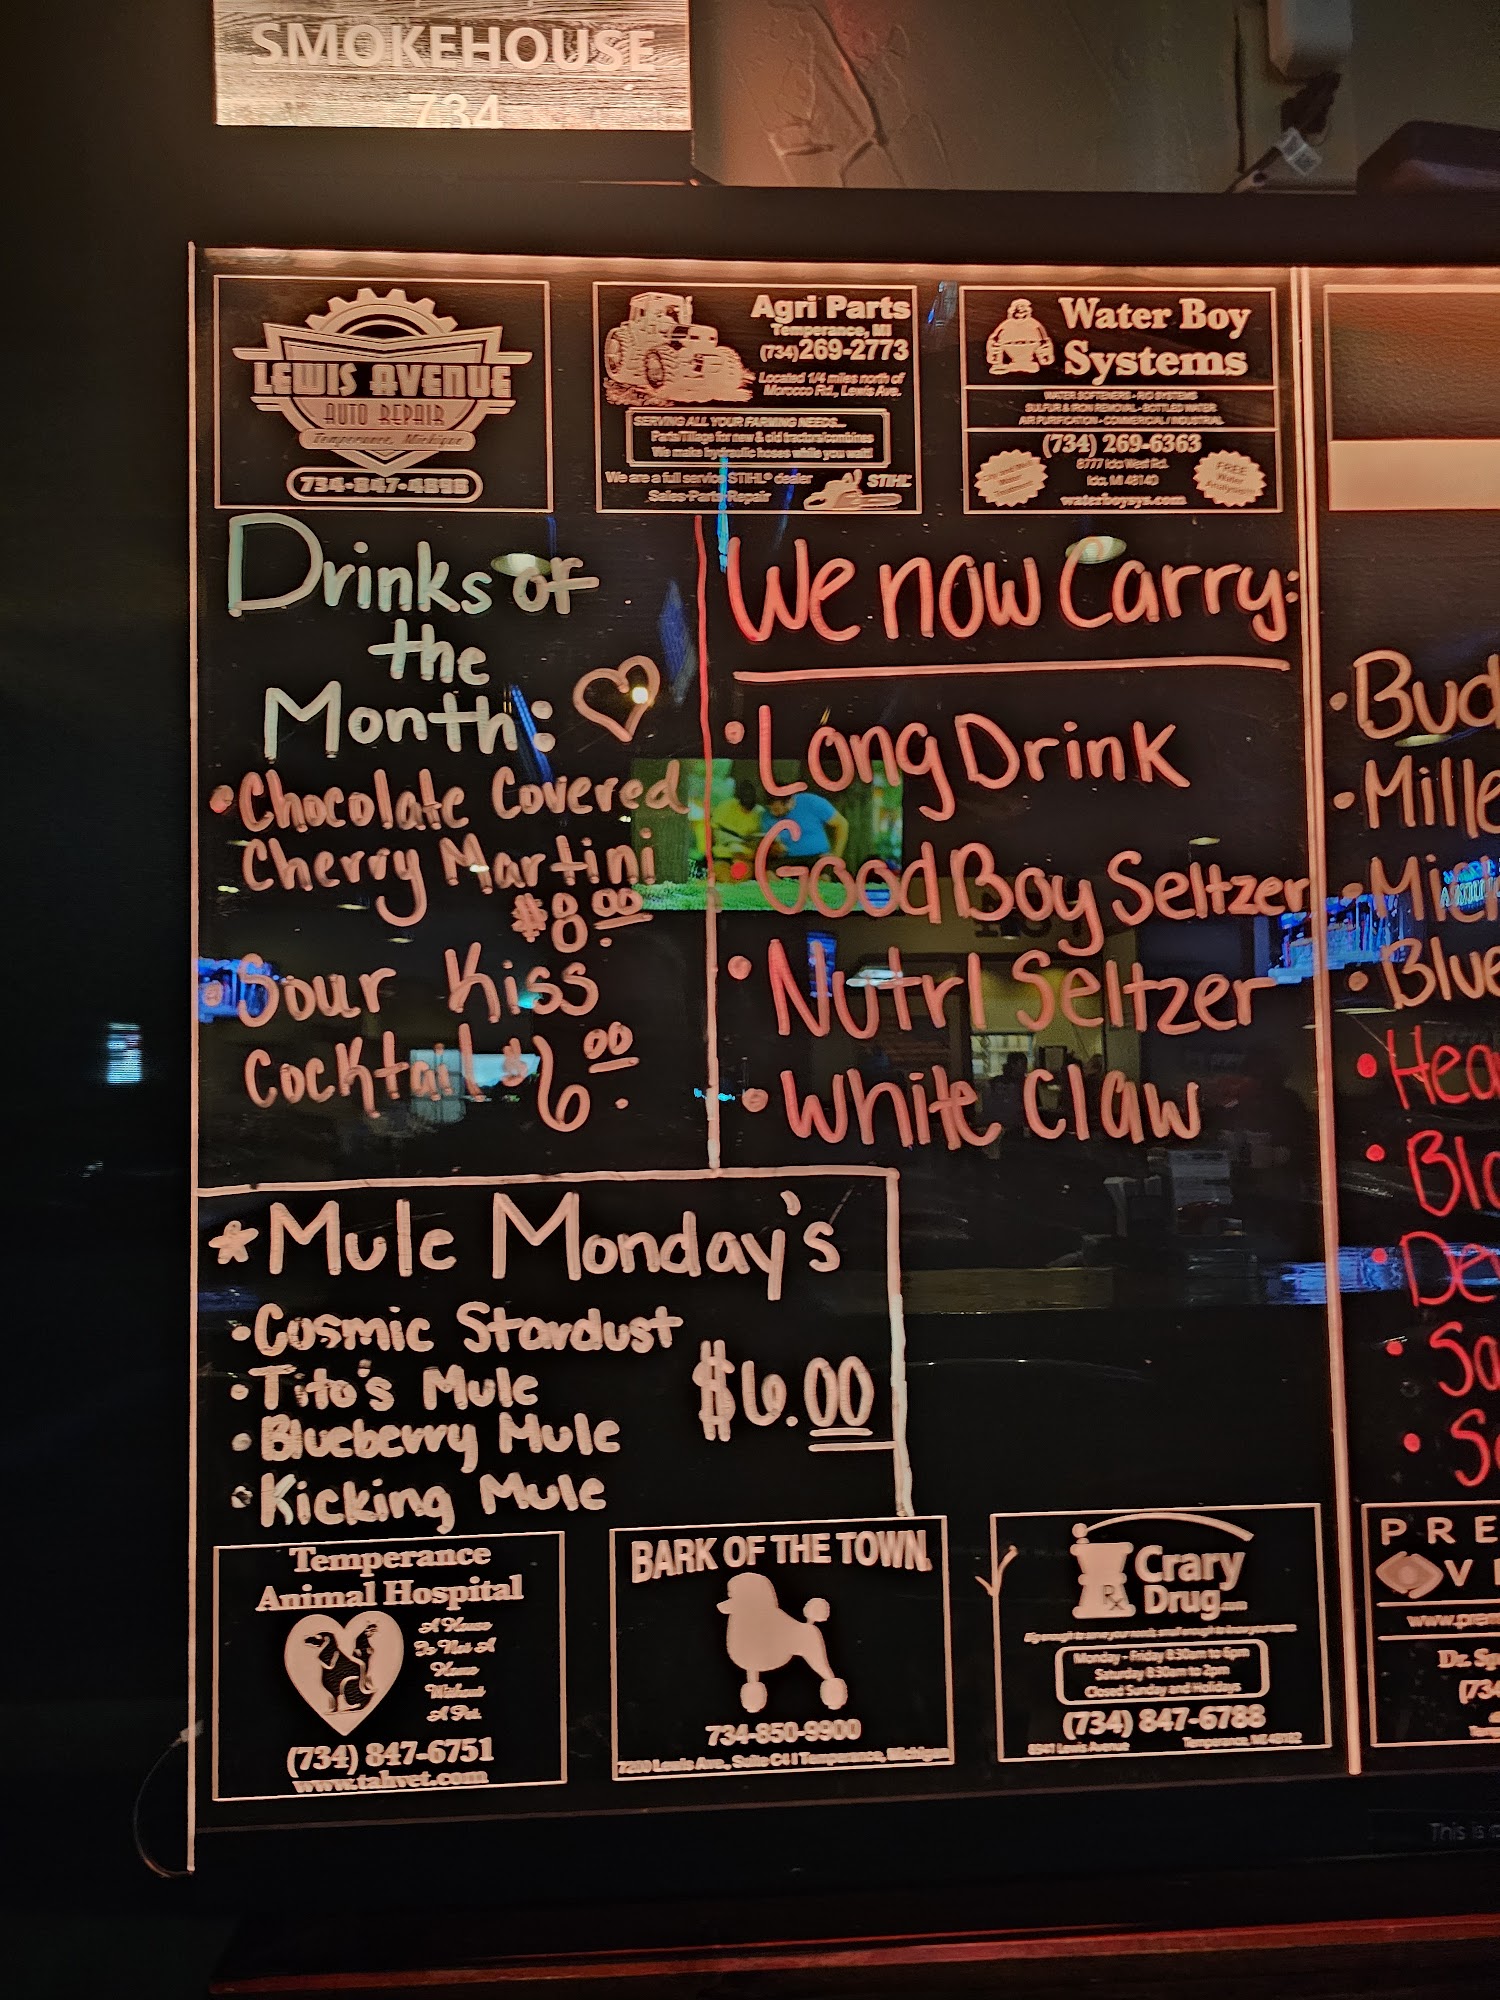 SMOKEHOUSE
734
LEWIS AVENUE
AUTO REPAIR
Temperance, Michigan
734-847-4898
Agri Parts
Temperance, MI
(734)269-2773
Located 1/4 miles north of
Morocco Rd., Lewis Ave.
SERVING ALL YOUR FARMING NEEDS...
Parts/Tillage for new & old tractors/combines
We make hydraulic hoses while you wait!
We are a full service STIHL® dealer
Sales-Parts-Repair
STIHL
Water Boy
Systems
WATER SOFTENERS - R/O SYSTEMS
SULFUR & IRON REMOVAL - BOTTLED WATER
AIR PURIFICATION - COMMERCIAL / INDUSTRIAL
(734) 269-6363
8777 Ida West Rd.
Ida, MI 48140
FREE
Water
Analysis
Drinks of
the
Month:
• Chocolate Covered
Cherry Martini
$8.00
• Sour Kiss
Cocktail $6.00
We now Carry:
• Long Drink
• Good Boy Seltzer
• Nutrl Seltzer
• White Claw
* Mule Monday's
• Cosmic Stardust
• Tito's Mule
• Blueberry Mule
• Kicking Mule
$6.00
• Bud
• Mille
• Mic
• Blue
• Hea
• Blo
• De
• Sa
• S
Temperance
Animal Hospital
A House
Is Not A
Home
Without
A Pet.
(734) 847-6751
www.tahvet.com
BARK OF THE TOWN
734-850-9900
7200 Lewis Ave., Suite C4 | Temperance, Michigan
Crary
Drug.com
Rx
Monday - Friday 8:30am to 6pm
Saturday 8:30am to 2pm
Closed Sunday and Holidays
(734) 847-6788
Lewis Avenue
Temperance, MI 48182
PRE
VI
www.prem
Dr. Sp
(734
This is